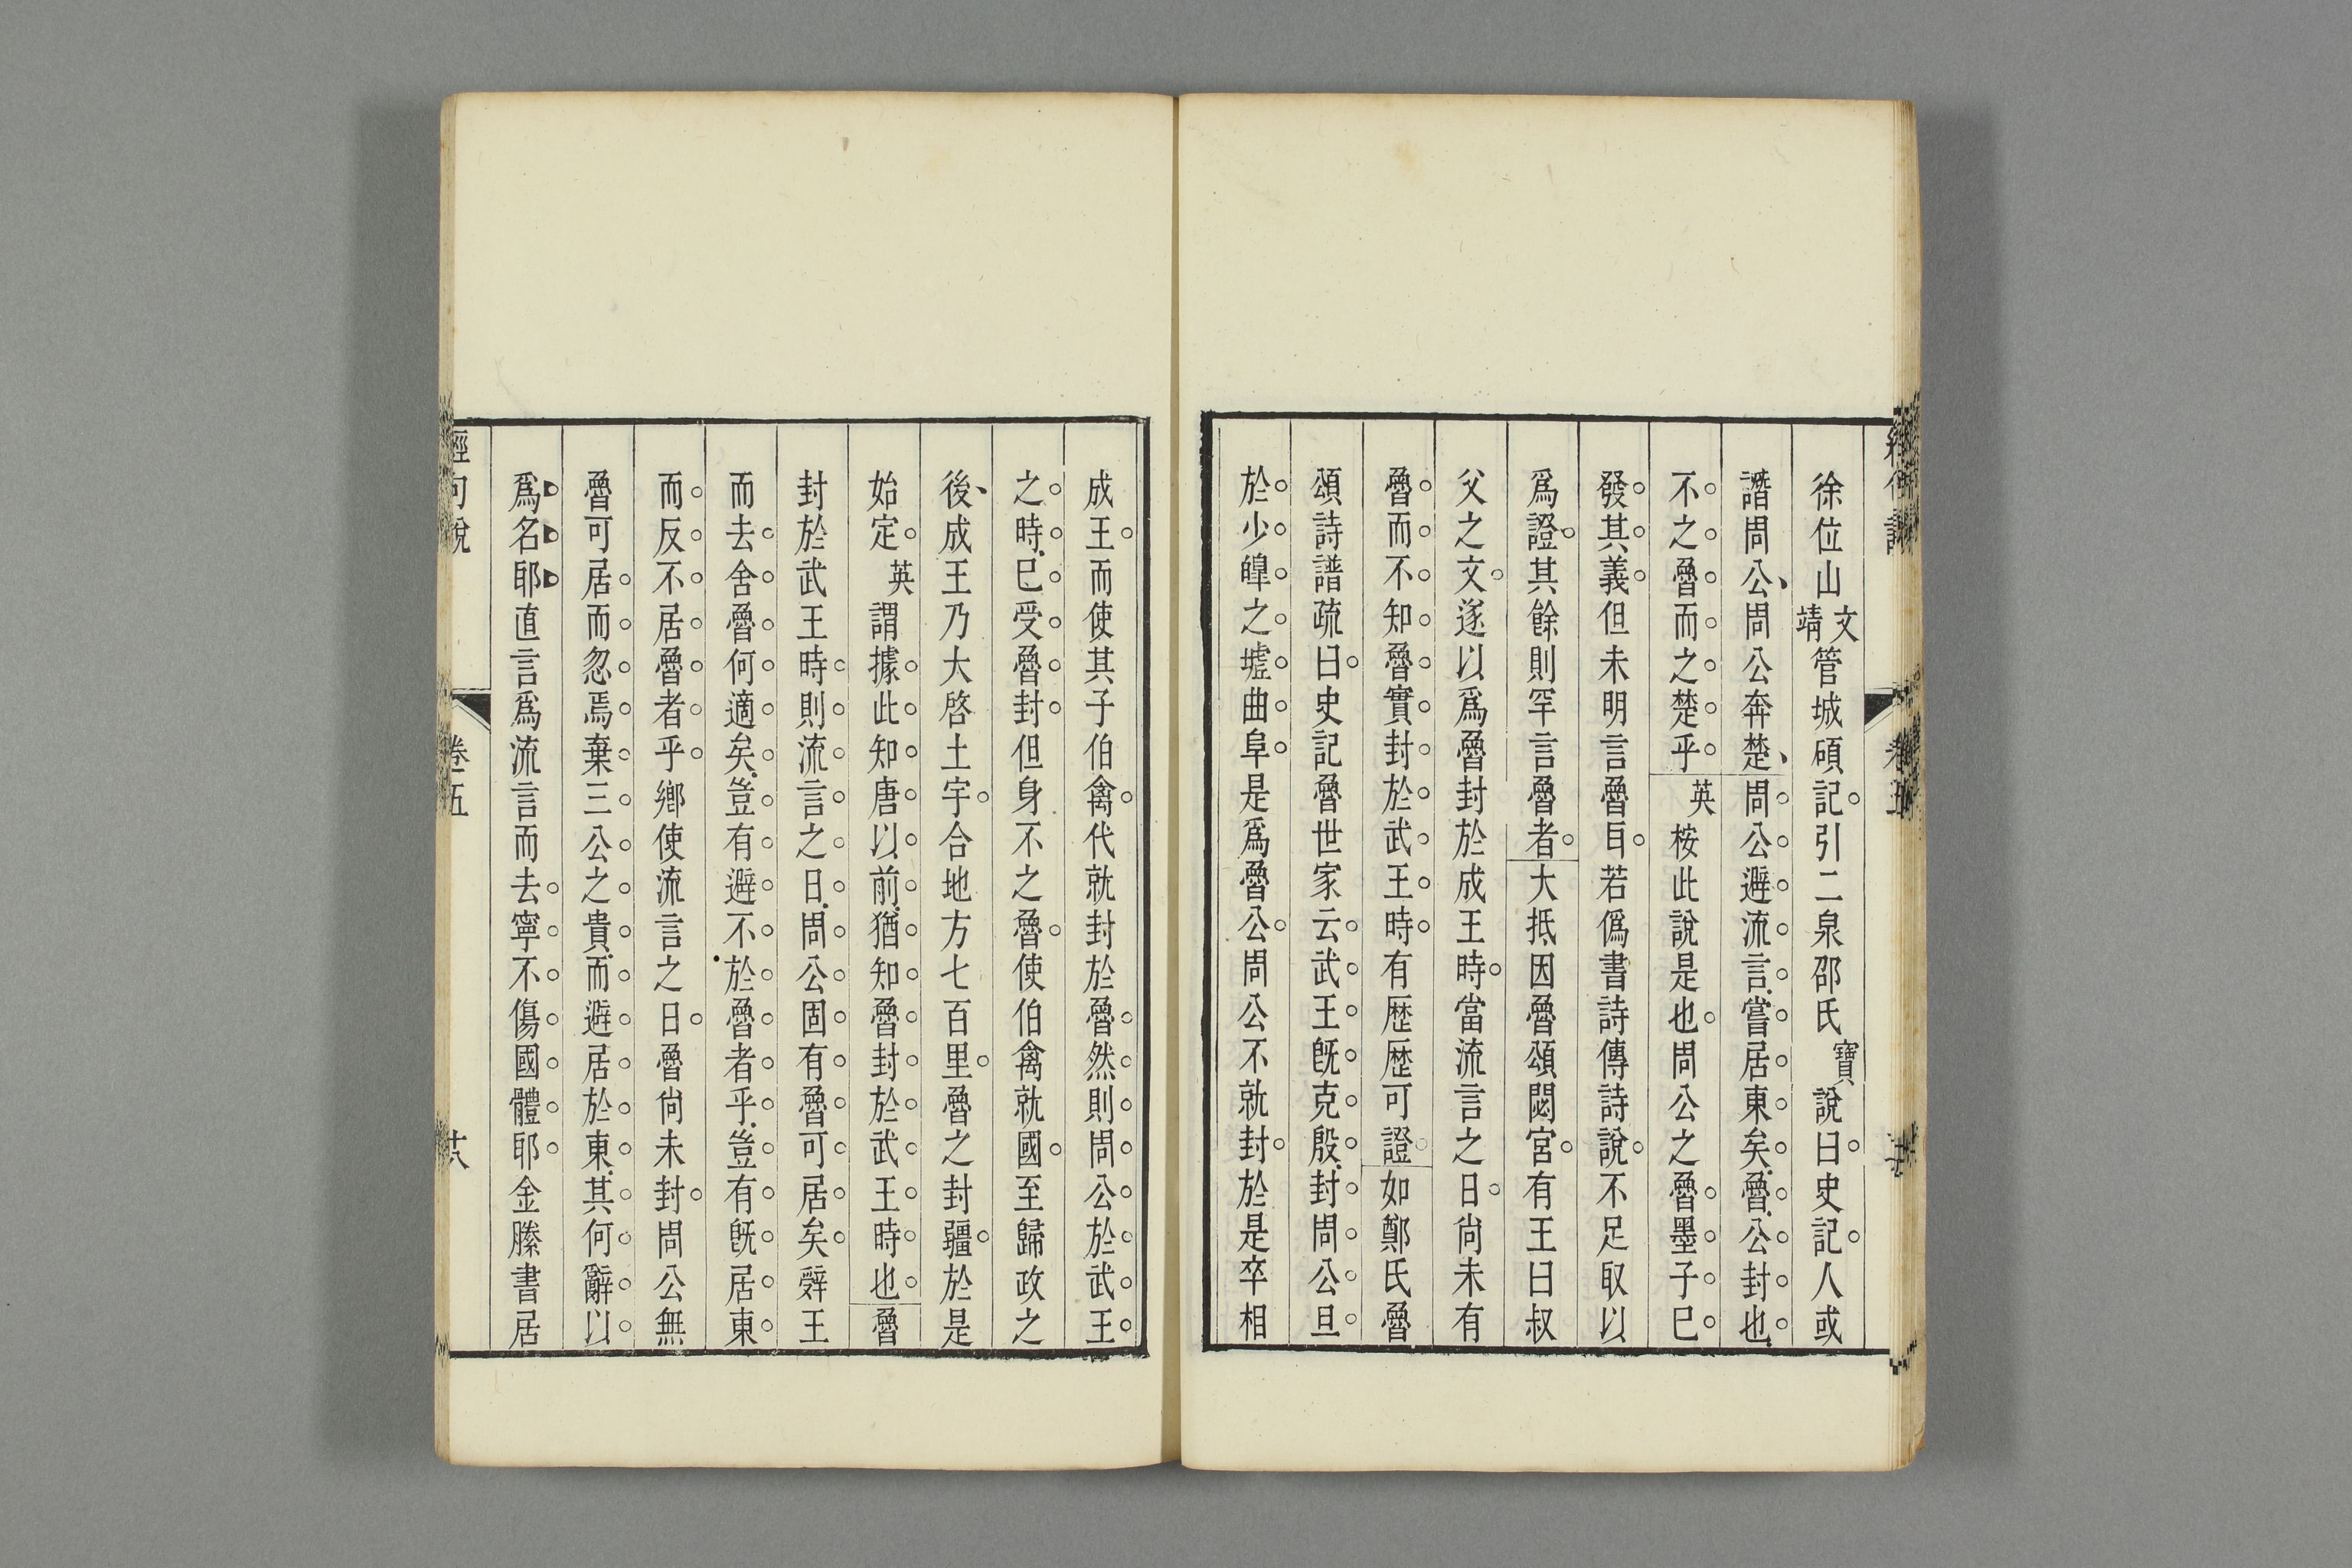 徐位山文靖管城碩記引二泉邵氏寶說曰史記人或
譖周公周公奔楚周公避流言嘗居東矣魯公封也
不之魯而之楚乎英桉此說是也周公之魯墨子巳
發其義但未明言魯耳若僞書詩傳詩說不足取以
爲證其餘則罕言魯者大抵因魯頌閟宮有王曰叔
父之文遂以爲魯封於成王時當流言之日尙未有
魯而不知魯實封於武王時有歷歷可證如鄭氏魯
頌詩譜疏曰史記魯世家云武王旣克殷封周公旦
於少皥之墟曲阜是爲魯公周公不就封於是卒相
成王而使其子伯禽代就封於魯然則周公於武王
之時巳受魯封但身不之魯使伯禽就國至歸政之
後成王乃大啓土宇合地方七百里魯之封疆於是
始定英謂據此知唐以前猶知魯封於武王時也魯
封於武王時則流言之日周公固有魯可居矣辭王
而去舍魯何適矣豈有避不於魯者乎豈有旣居東
而反不居魯者乎鄉使流言之日魯尙未封周公無
魯可居而忽焉棄三公之貴而避居於東其何辭以
爲名耶直言爲流言而去寧不傷國體耶金縢書居
經句說
卷五